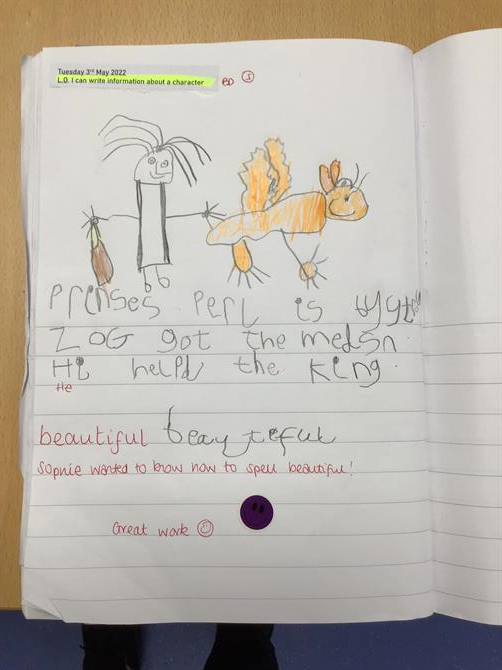 Tuesday 3rd May 2022
L.O. I can write information about a character
BD I
Prinses Perl is
ZOG got the medsn.
Hi helpd the King.
He
beautiful beauteful
Sophie wanted to know how to spell beautiful!
Great work